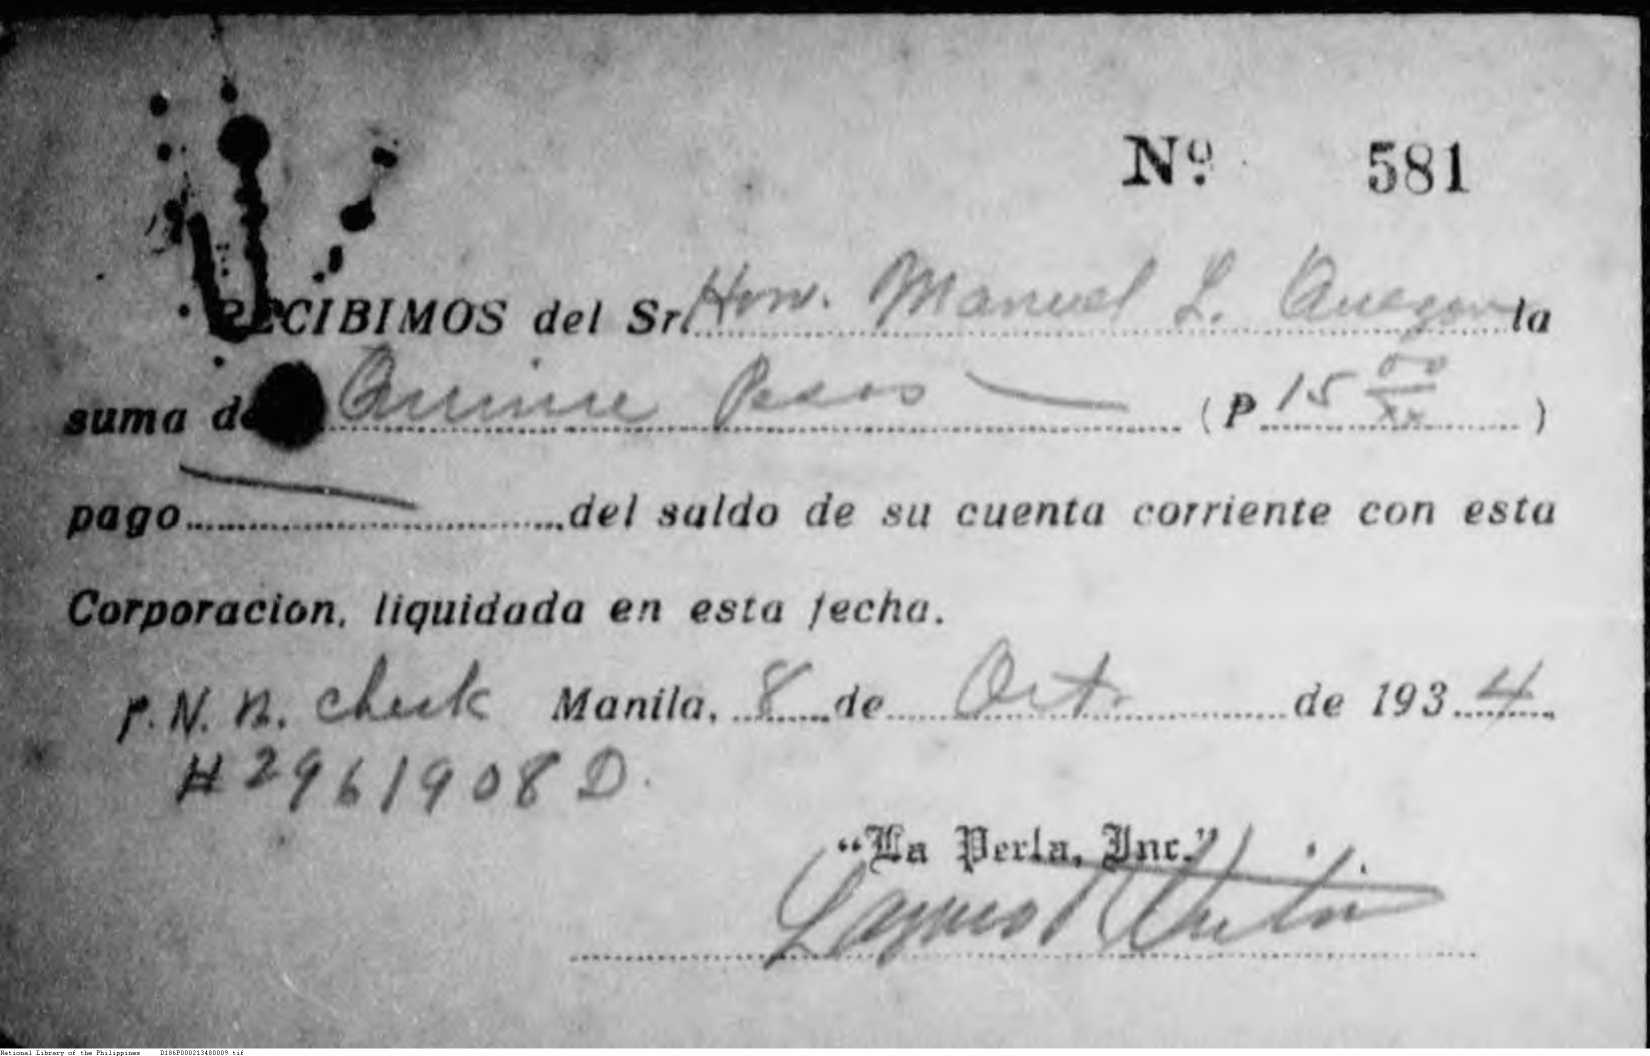 Nº. 581
RECIBIMOS del Sr. Hon. Manuel L. Quezon la
suma de Quince Pesos (P 15 00/xx)
pago del saldo de su cuenta corriente con esta
Corporacion, liquidada en esta fecha.
P.N.B. check Manila, 8 de Oct. de 1934
#2961908D.
"La Perla, Inc."
National Library of the Philippines D186P000213480009.tif